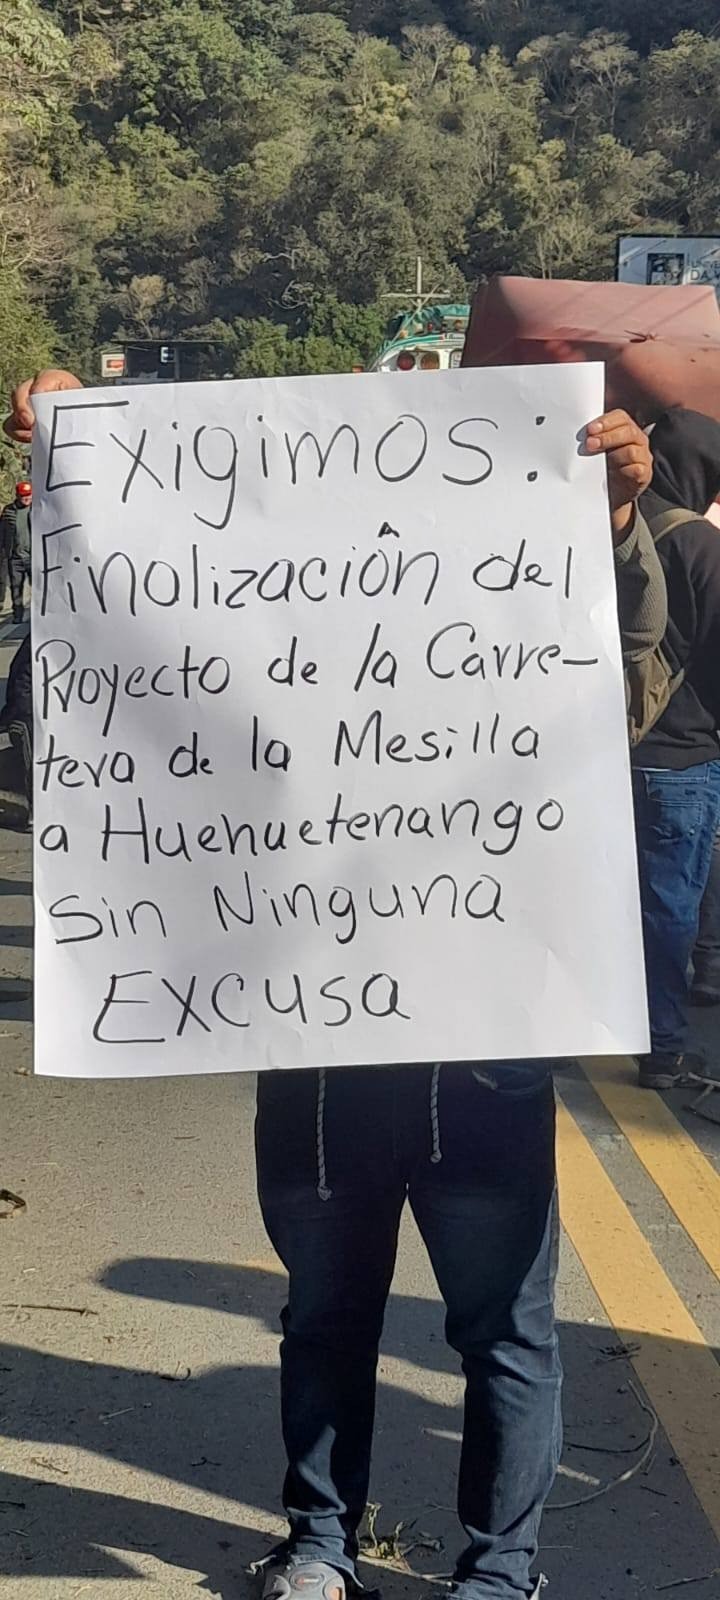 Exigimos:
Finalización del
Proyecto de la Carre-
tera de la Mesilla
a Huehuetenango
Sin Ninguna
Excusa